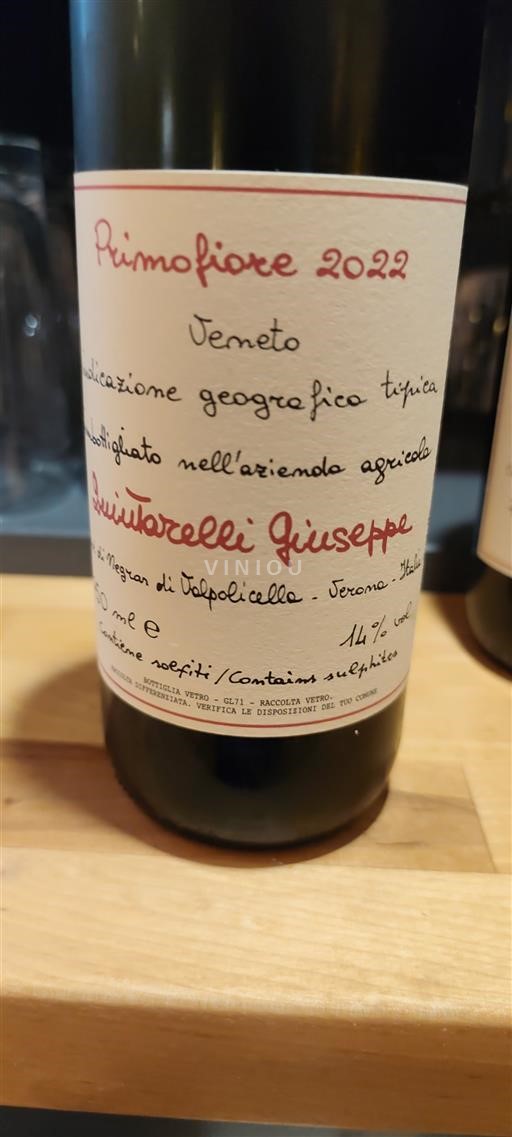 Primofiore 2022
Veneto
indicazione geografica tipica
imbottigliato nell'azienda agricola
Quintarelli Giuseppe
VINIOU
di Negrar di Valpolicella - Verona - Italia
50 ml e
14% vol
Contiene solfiti/Contains sulphites
BOTTIGLIA VETRO - GL71 - RACCOLTA VETRO.
RACCOLTA DIFFERENZIATA. VERIFICA LE DISPOSIZIONI DEL TUO COMUNE